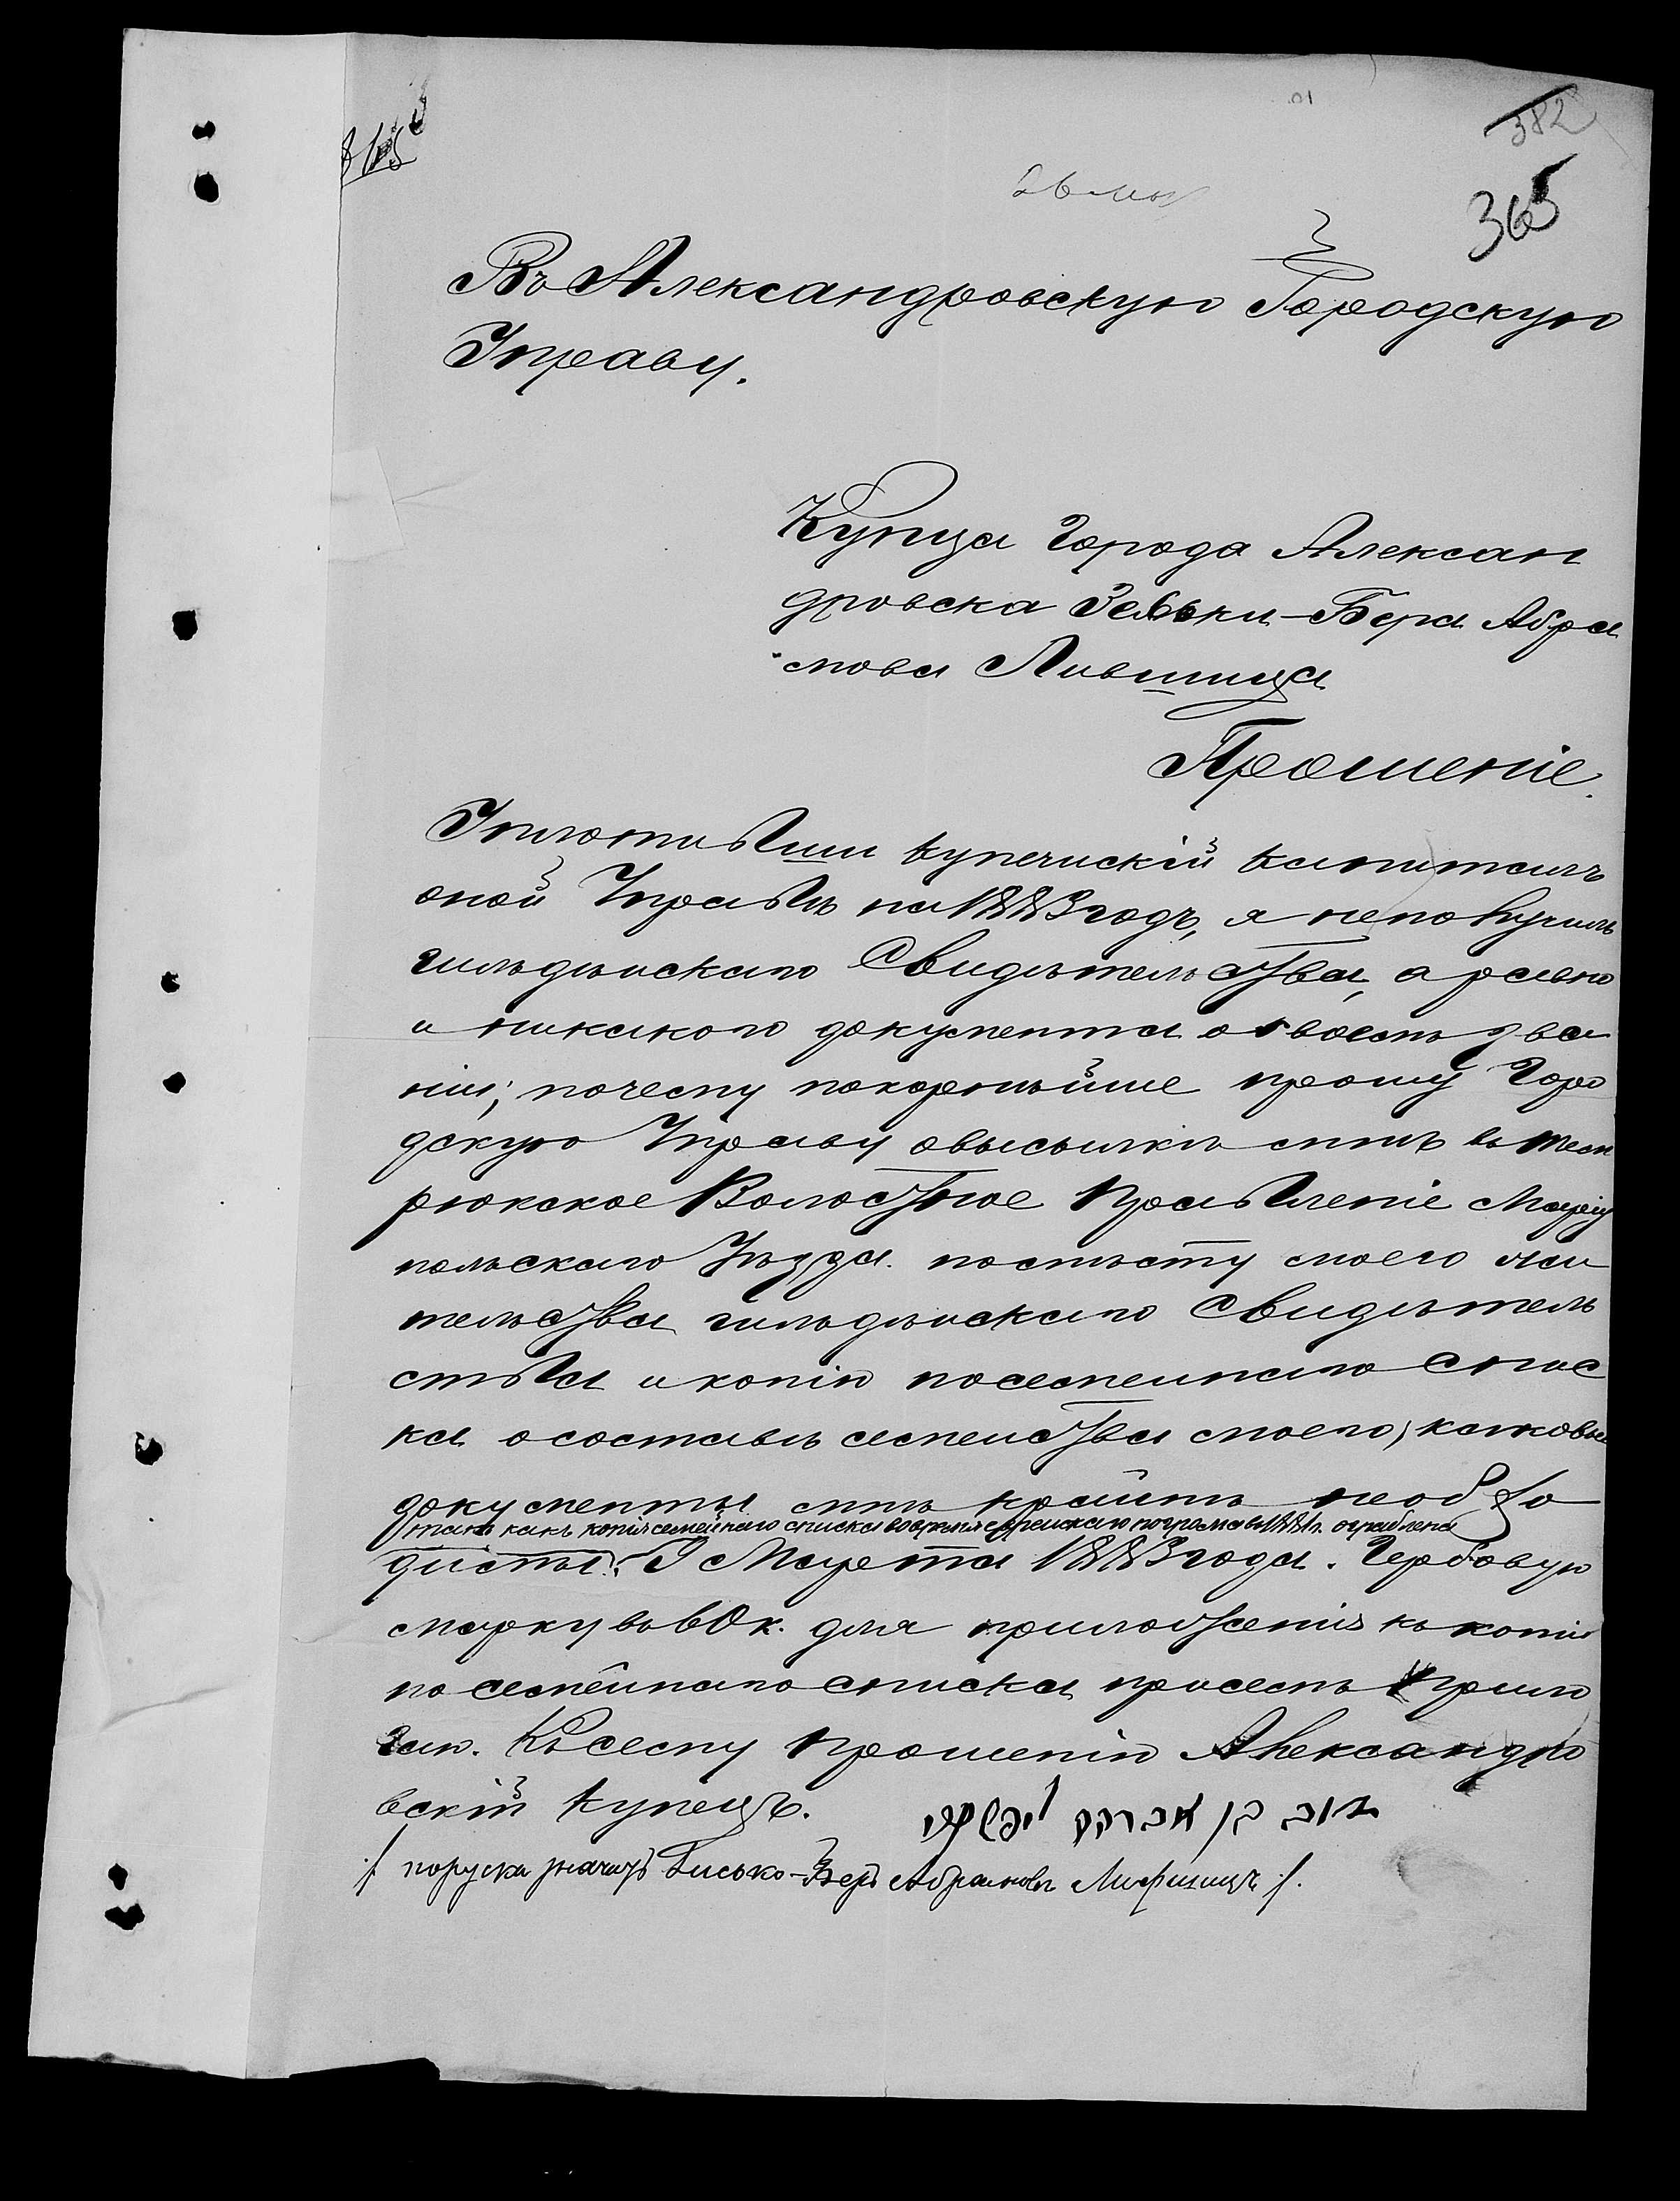 382
365
Въ Александровскую Городскую
Управу.
Купца города Алексан
дровска Зельки-Бера Абра
мова Лившица
Прошеніе.
Уплотивши купечискій капиталъ
оной Управѣ на 1883 годъ, я не получилъ
гильдѣискаго Свидѣтельства, а равно
и никакого документа о своемъ зва
ніи; почему покорнѣйше прошу Горо
дскую Управу о высылкѣ мнѣ въ Тем
рюкское Волостное Правленіе Маріу
польскаго Уѣзда по мѣсту моего жи
тельства гильдѣискаго Свидѣтель
ства и копію посемейнаго спис
ка о составѣ семейства моего, каковые
документы мнѣ крайнѣ необхо
такъ какъ копія семейнаго списка во время еврейскаго погрома въ 1881 г. ограблена
димы. 9 Марта 1883 года. Гербовую
марку въ 60 к. для приложенія къ копіи
посемейнаго списка присемъ прила
гаю. Къ сему прошенію Александро
вскій купецъ. בן אברהם
порузки значитъ -Беръ Абрамовъ Лифшицъ